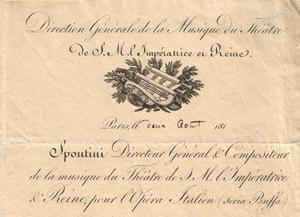 Direction Générale de la Musique du Théâtre
de S. M. l'Impératrice et Reine.
Paris, le deux Août 181
Spontini Directeur Général & Compositeur
de la musique du Théâtre de S. M. l'Impératrice
& Reine, pour l'Opéra Italien (seria Buffa)